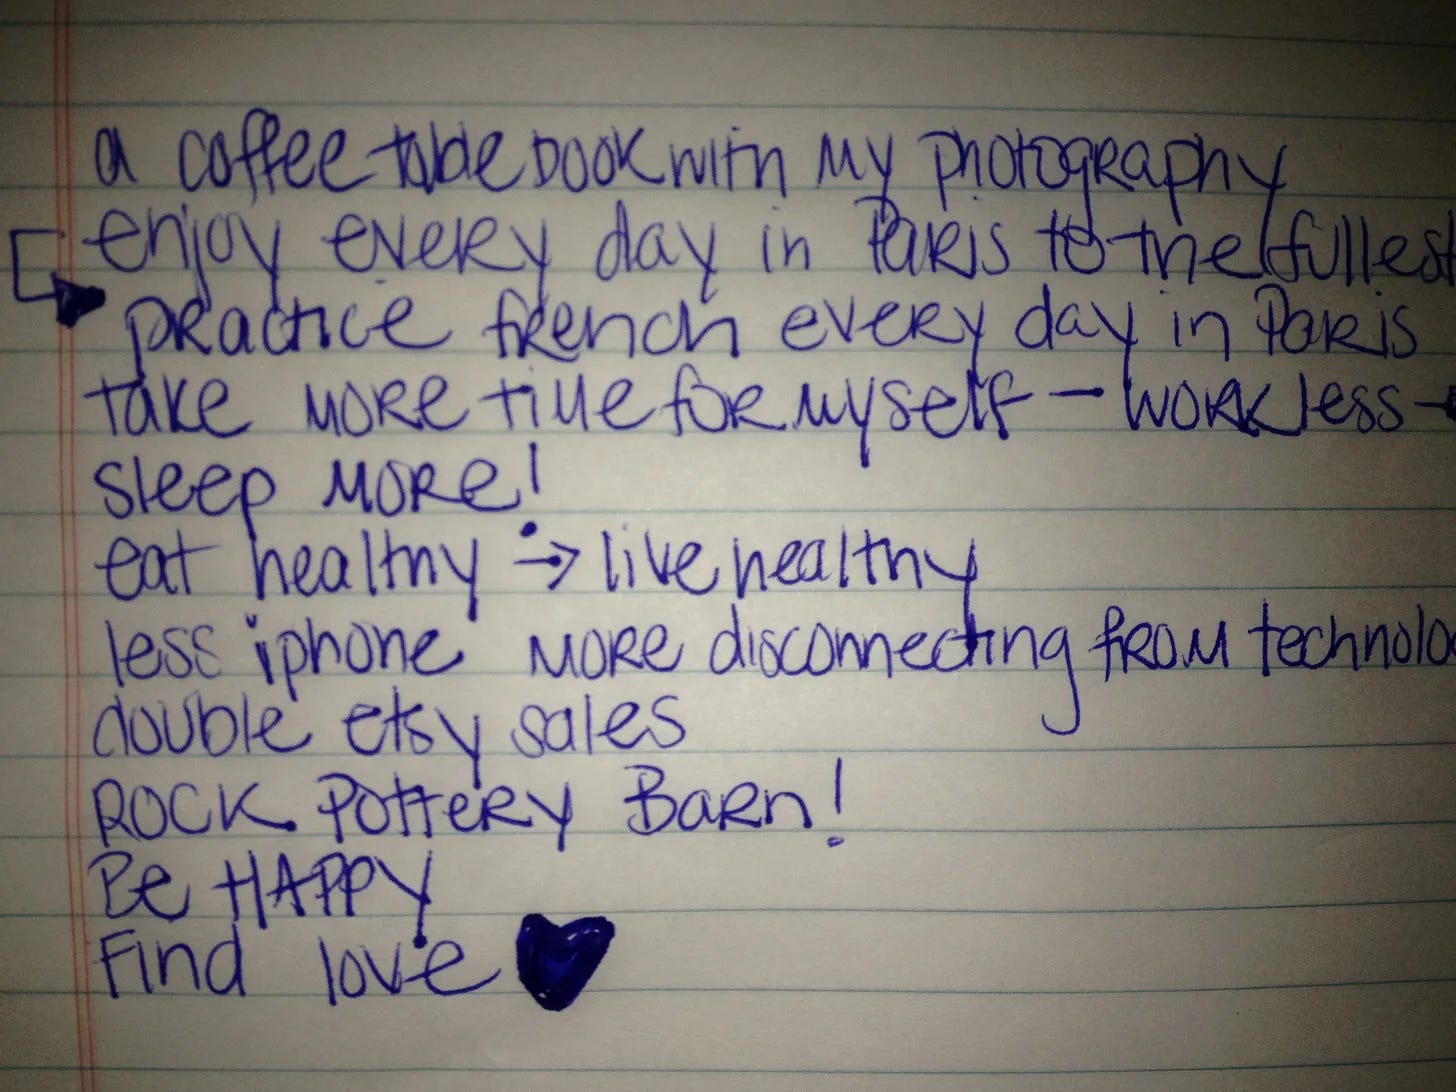 a coffee table book with my photography
enjoy every day in Paris to the fullest
practice french every day in Paris
take more time for myself – work less –
sleep more!
eat healthy → live healthy
less iphone more disconnecting from technolo
double etsy sales
ROCK Pottery Barn!
Be HAPPY
Find love